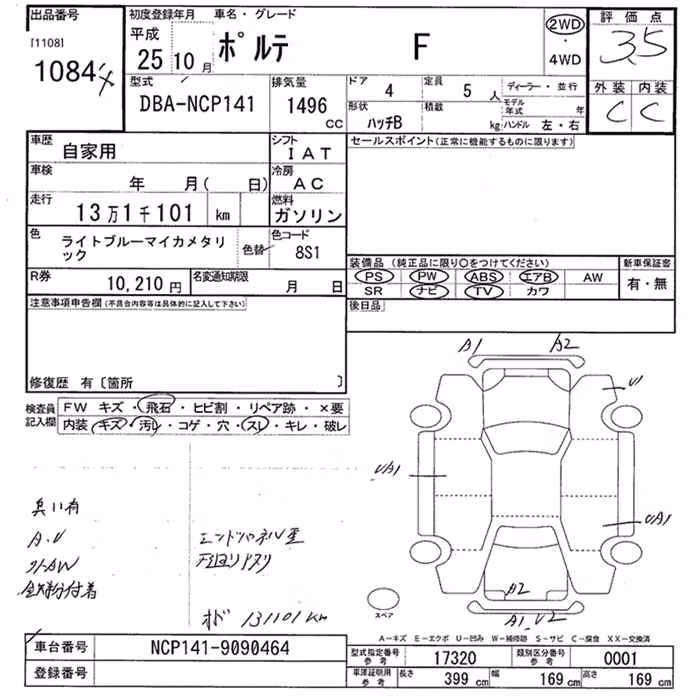 出品番号
[1108]
1084
初度登録年月
平成
25 10月
車名・グレード
ポルテ F
2WD
・
4WD
評価点
3.5
外装 内装
C C
型式
DBA-NCP141
排気量
1496
CC
ドア 4
定員 5 人
ディーラー・並行
形状 ハッチB
積載 kg
モデル年式 年
ハンドル 左・右
車歴
自家用
シフト
IAT
セールスポイント(正常に機能するものに限ります)
車検
年 月( 日)
冷房
AC
走行
13万1千101 km
燃料
ガソリン
色
ライトブルーマイカメタリック
色替
色コード
8S1
装備品 (純正品に限り○をつけてください)
PS PW ABS エアB AW
SR ナビ TV カワ
新車保証書
有・無
R券
10,210円
名変通知期限
月 日
後日品
注意事項申告欄(不具合内容等は具体的に記入して下さい)
修復歴 有〔箇所 〕
検査員
記入欄
FW キズ・飛石・ヒビ割・リペア跡・×要
内装 キズ・汚レ・コゲ・穴・スレ・キレ・破レ
A1 A2
U1
UA1
UA1
A2
A1,U2
スペア
A.U
鉄粉付着
オド 131101km
A-キズ E-エクボ U-凹み W-補修跡 S-サビ C-腐食 XX-交換済
車台番号
NCP141-9090464
登録番号
型式指定番号
参考
17320
類別区分番号
参考
0001
車庫証明用
参考
長さ 399 cm
幅 169 cm
高さ 169 cm